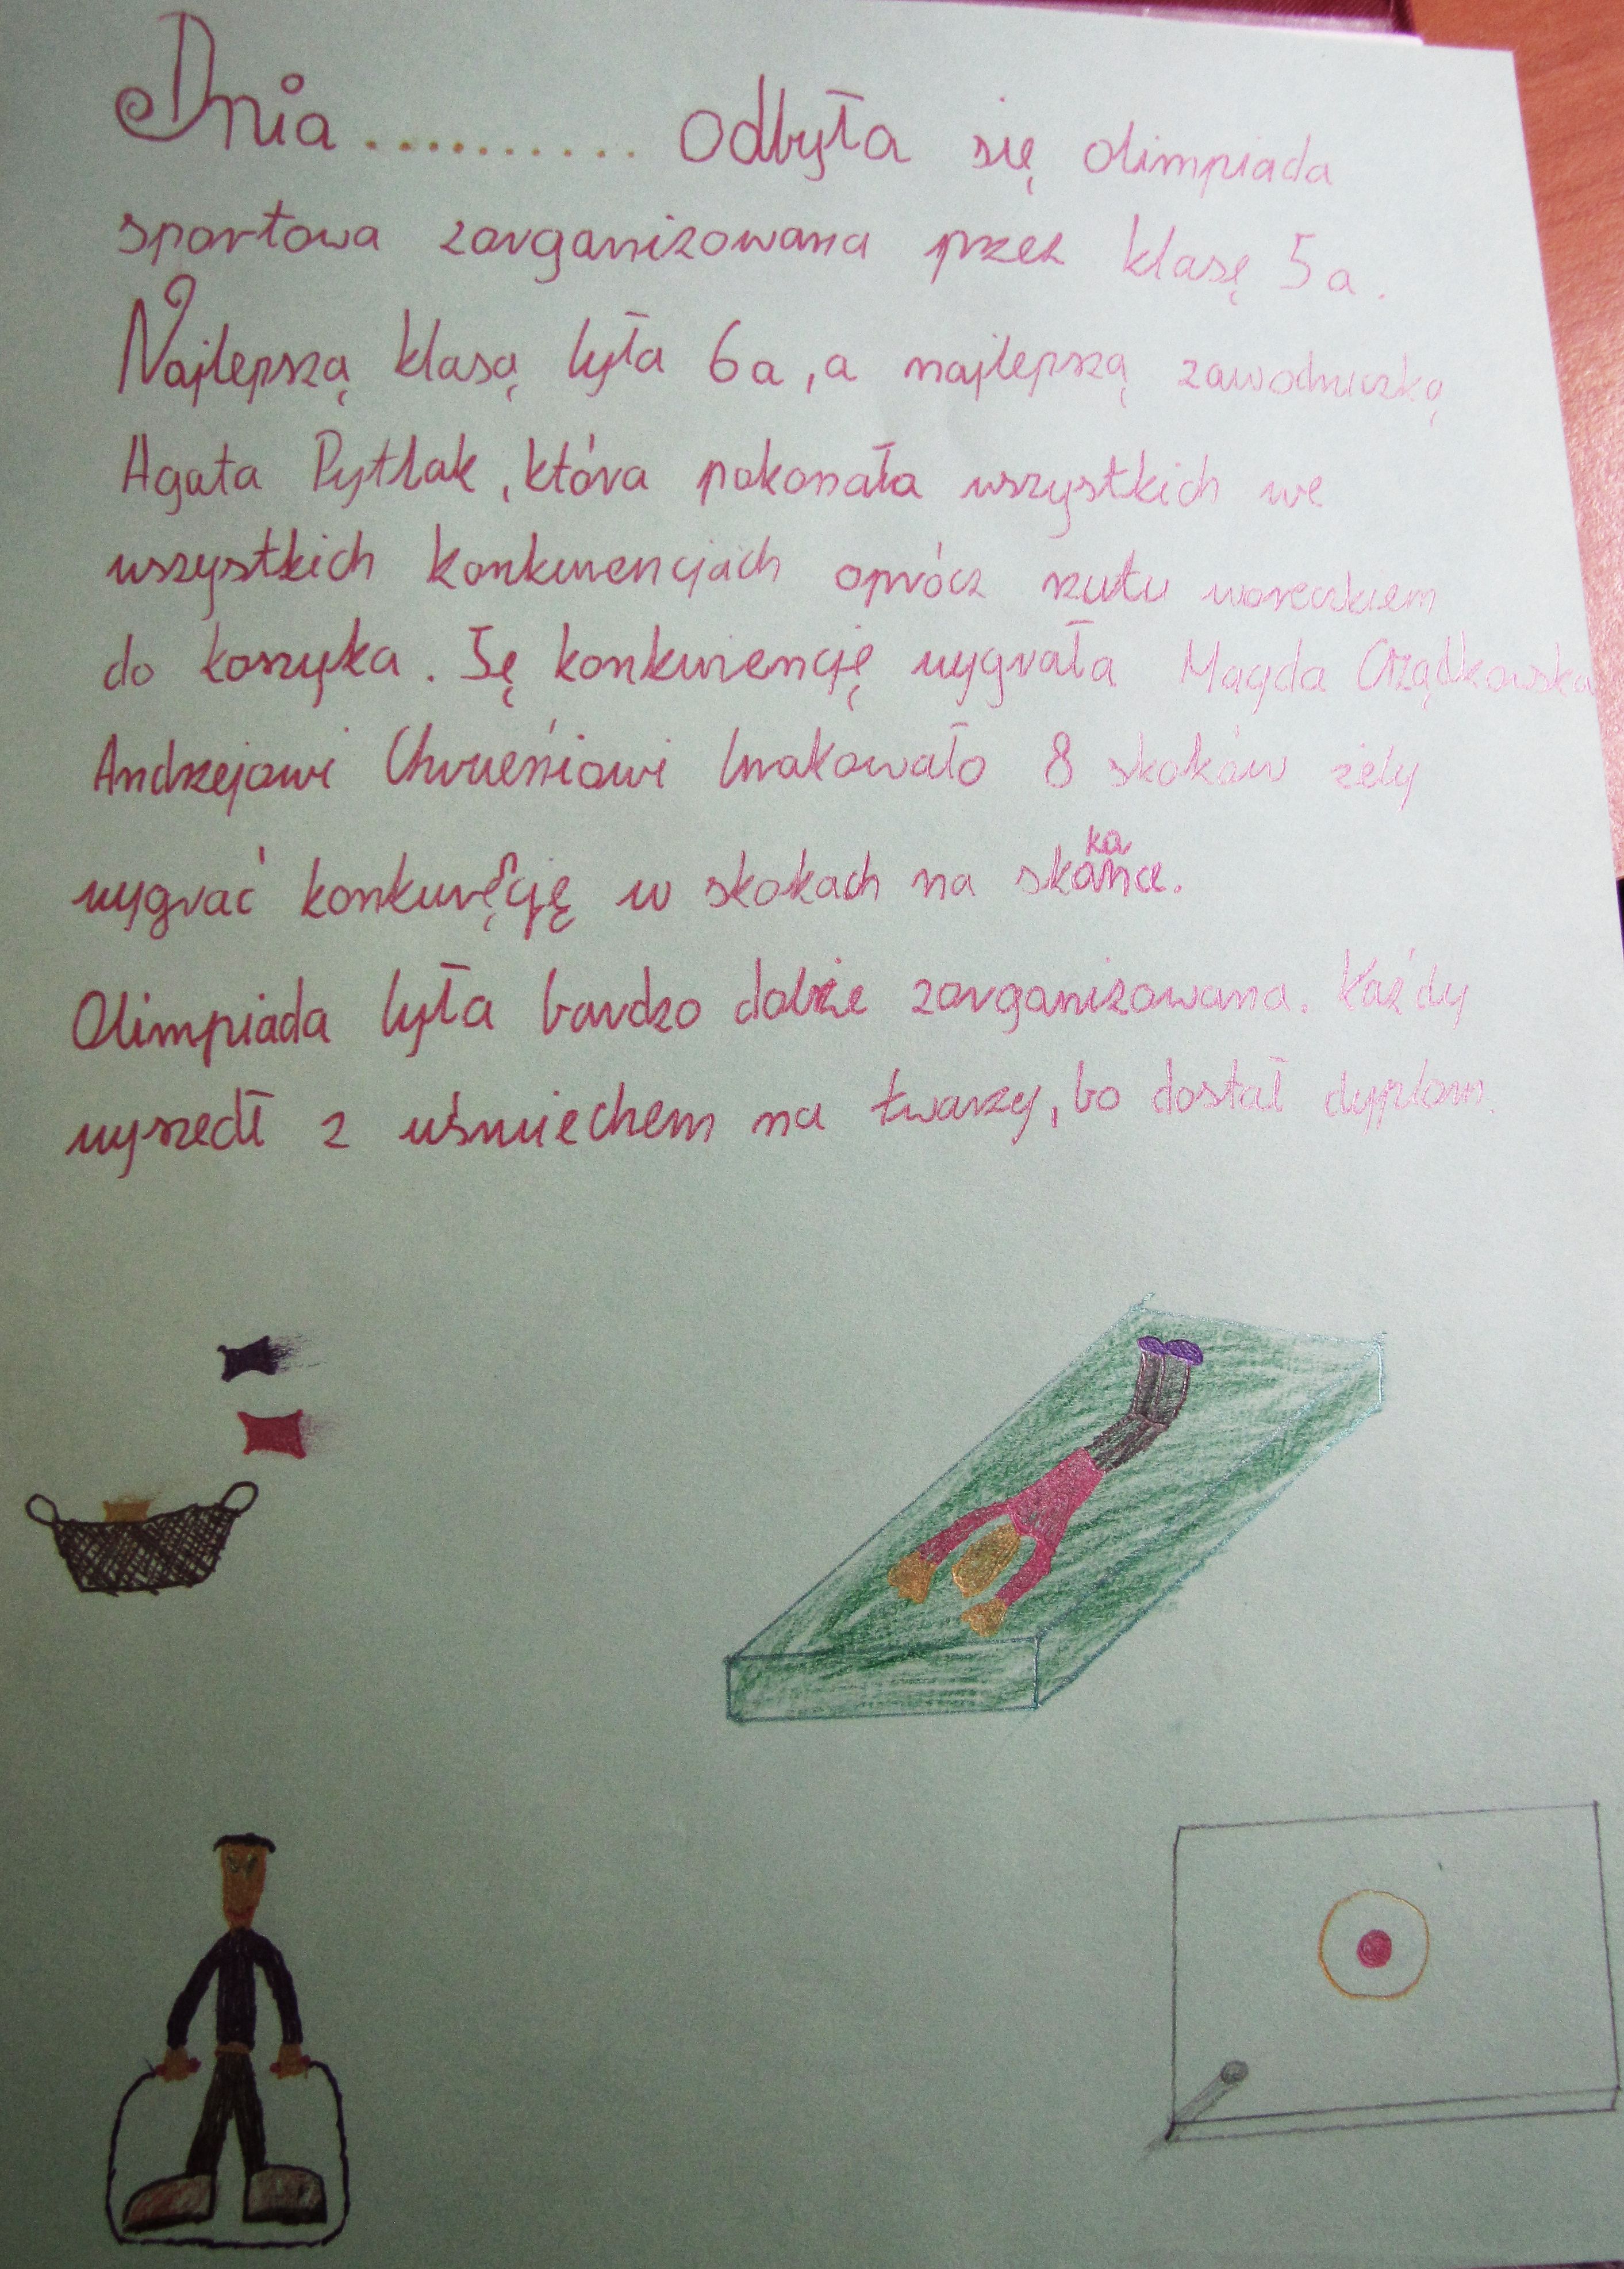 Dnia ........... odbyła się olimpiada
sportowa zorganizowana przez klasę 5a.
Najlepszą klasą była 6a, a najlepszą zawodniczką
Agata Pytlak, która pokonała wszystkich we
wszystkich konkurencjach oprócz rzutu woreczkiem
do koszyka. Tę konkurencję wygrała Magda
Andrzejowi brakowało 8 skoków żeby
wygrać konkuręcję w skokach na skakance.
Olimpiada była bardzo dobrze zorganizowana. Każdy
wyszedł z uśmiechem na twarzy, bo dostał dyplom.